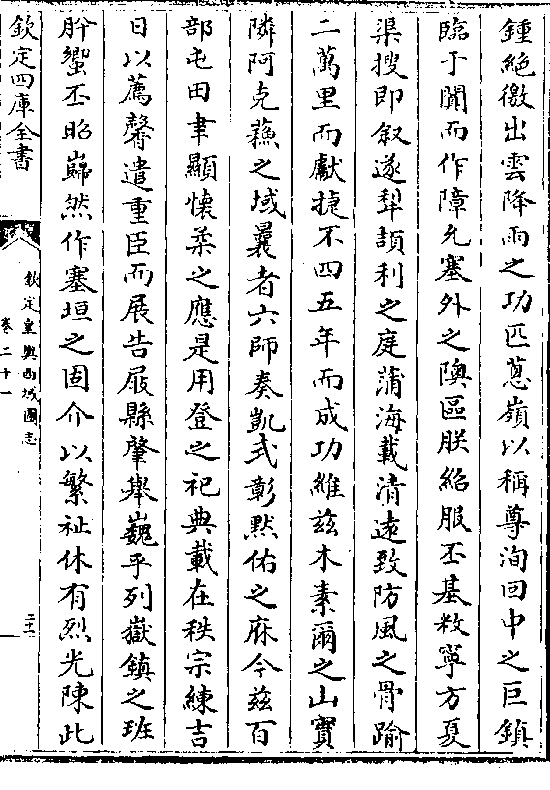 鍾絶徼出雲降雨之功匹蔥嶺以稱尊洵回中之巨鎮
臨于闐而作障允塞外之隩區朕紹服丕基敉寧方夏
渠搜即叙遂犁頡利之庭蒲海載清遠致防風之骨踰
二萬里而獻捷不四五年而成功維兹木素爾之山實
隣阿克蘓之域曩者六師奏凱式彰默佑之庥今兹百
部屯田聿顯懐柔之應是用登之祀典載在秩宗練吉
日以薦馨遣重臣而展告屐縣肇舉巍乎列嶽鎮之班
肸蠁丕昭巋然作塞垣之固介以繁祉休有烈光陳此
欽定四庫全書
欽定皇輿西域圖志
卷二十一